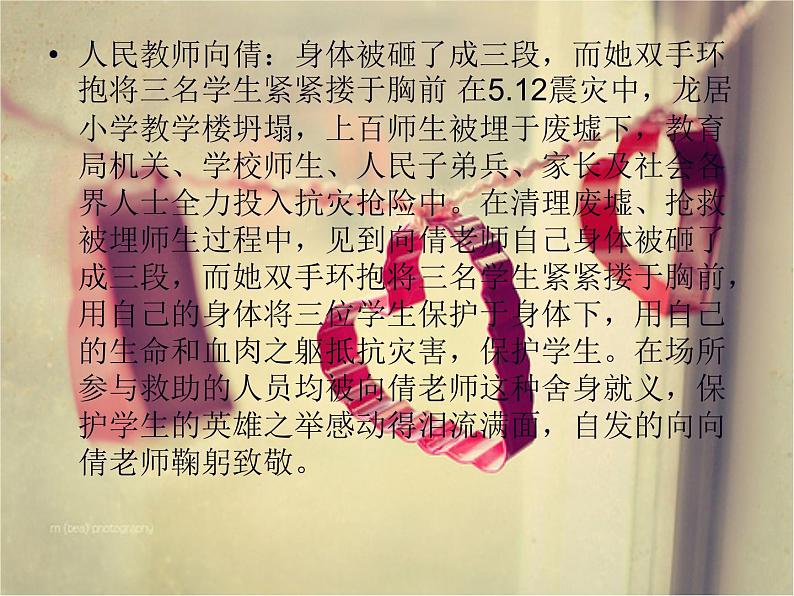 • 人民教师向倩：身体被砸了成三段，而她双手环
抱将三名学生紧紧搂于胸前 在5.12震灾中，龙居
小学教学楼坍塌，上百师生被埋于废墟下，教育
局机关、学校师生、人民子弟兵、家长及社会各
界人士全力投入抗灾抢险中。在清理废墟、抢救
被埋师生过程中，见到向倩老师自己身体被砸了
成三段，而她双手环抱将三名学生紧紧搂于胸前，
用自己的身体将三位学生保护于身体下，用自己
的生命和血肉之躯抵抗灾害，保护学生。在场所
参与救助的人员均被向倩老师这种舍身就义，保
护学生的英雄之举感动得泪流满面，自发的向向
倩老师鞠躬致敬。
m {bea} photography